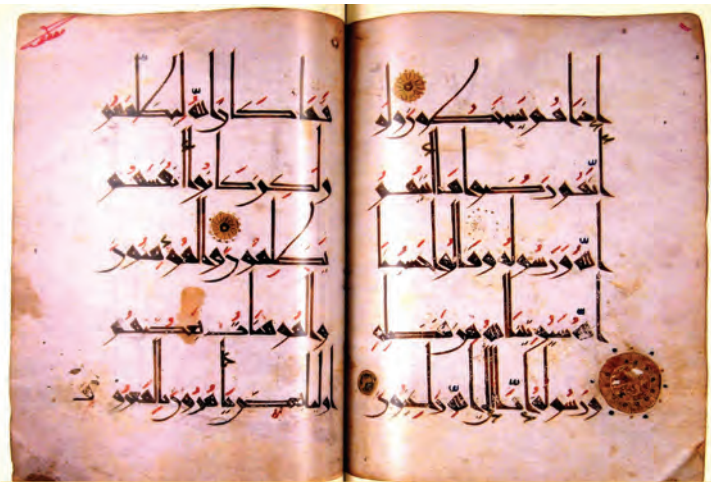 إذا هم يسخطون ولو
أنهم رضوا ما آتيهم
الله ورسوله وقالوا حسبنا
الله سيؤتينا الله من فضله
ورسوله إنا إلى الله راغبون
فما كان الله ليظلمهم
ولكن كانوا أنفسهم
يظلمون والمؤمنون
والمؤمنات بعضهم
أولياء بعض يأمرون بالمعروف